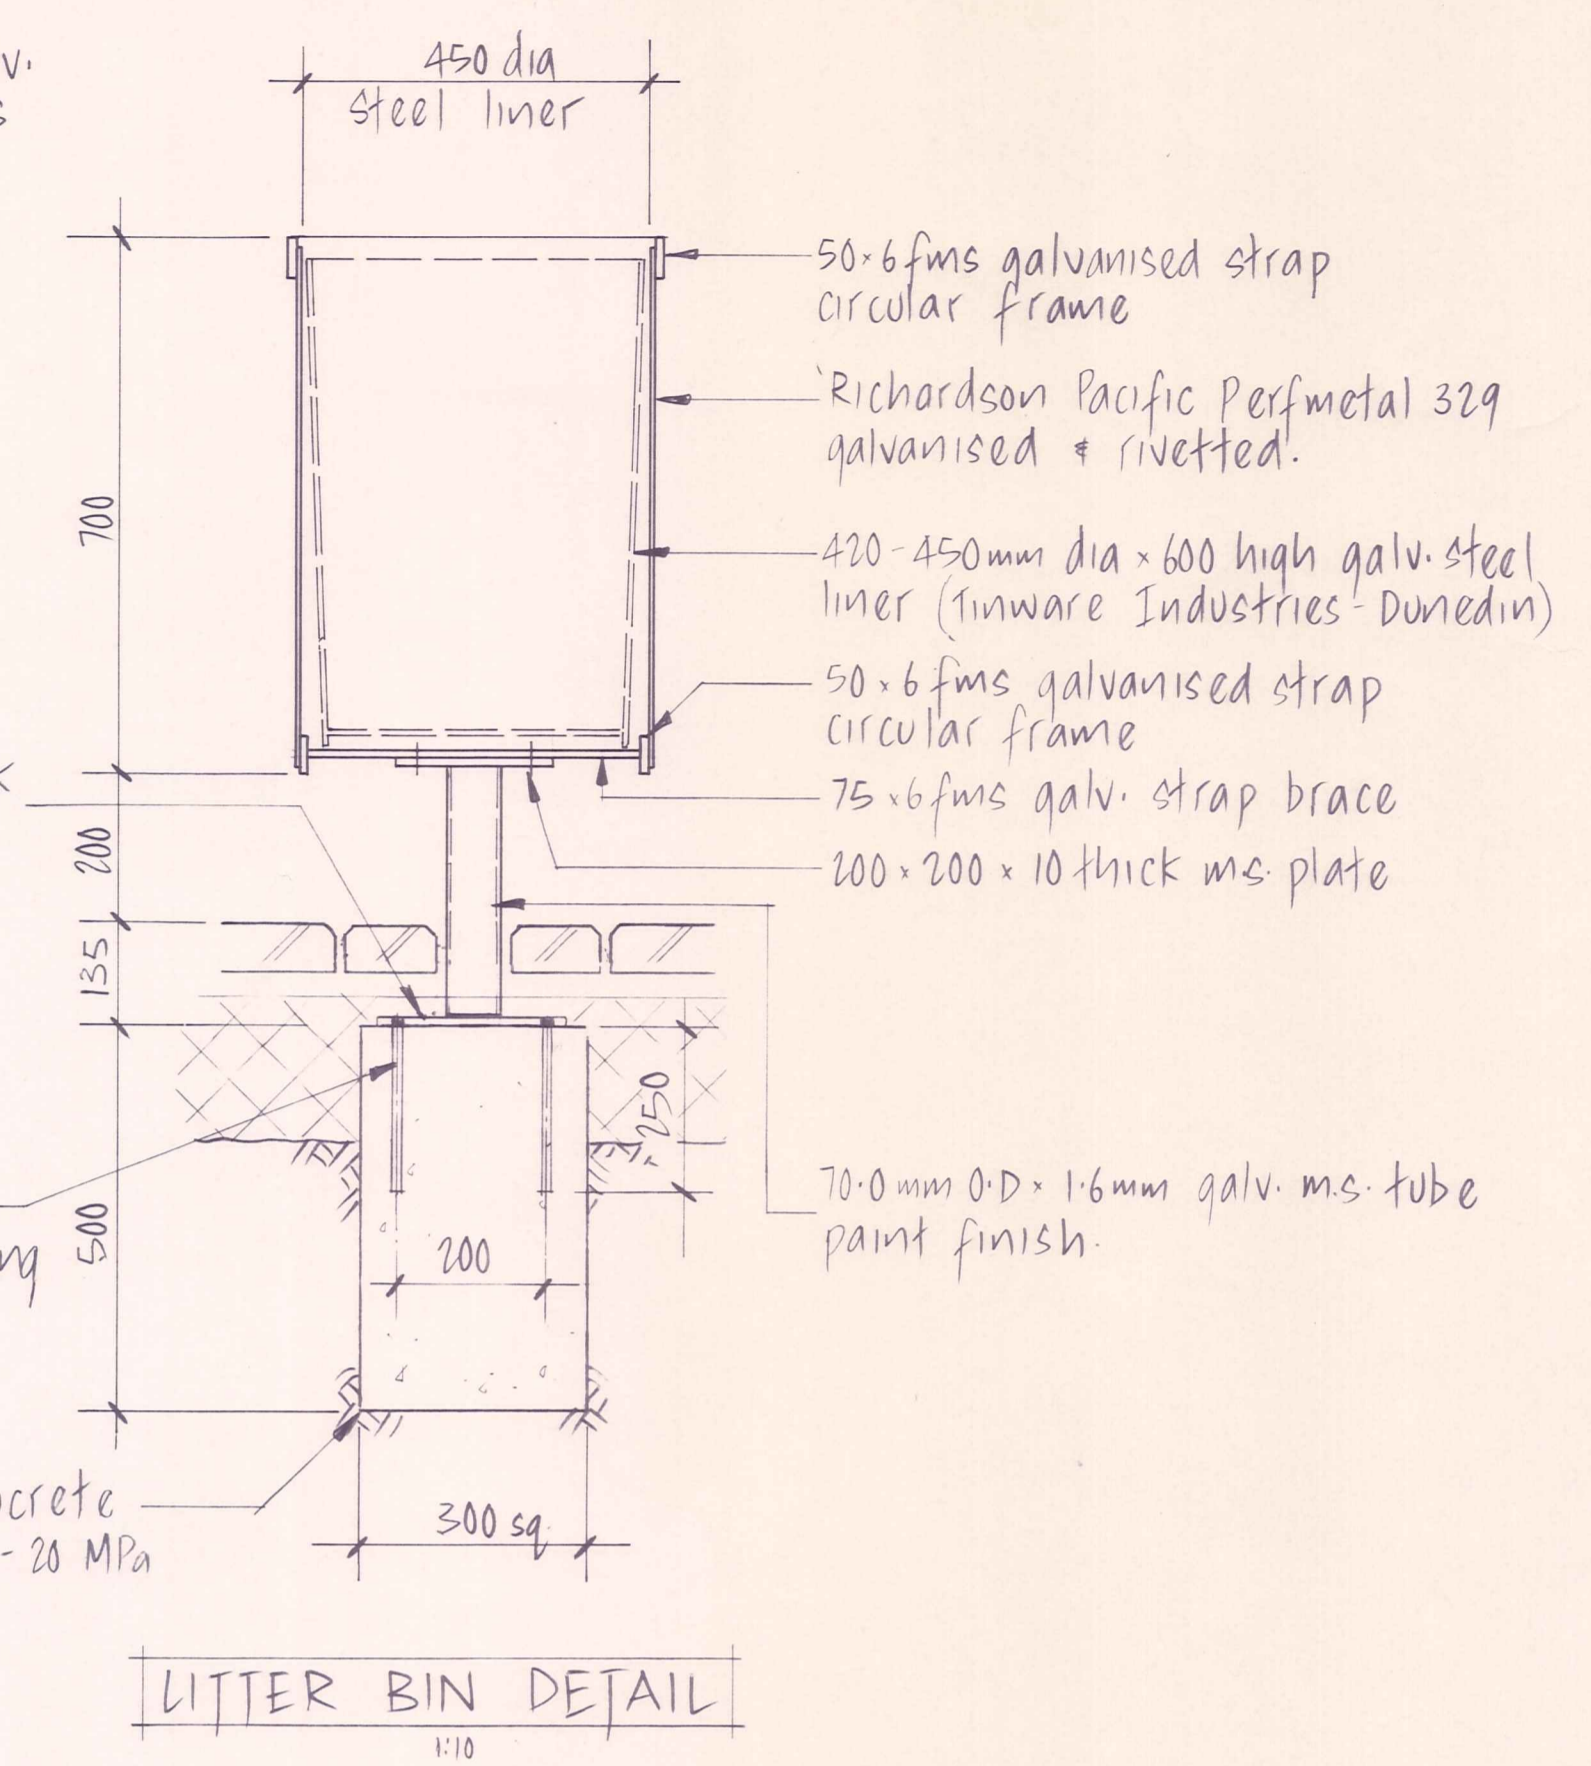 450 dia
steel liner
50×6 fms galvanised strap
circular frame
'Richardson Pacific Perfmetal 329
galvanised & rivetted'.
420-450mm dia × 600 high galv. steel
liner (Tinware Industries - Dunedin)
50×6 fms galvanised strap
circular frame
75×6 fms galv. strap brace
200 × 200 × 10 thick m.s. plate
700
200
135
250
70.0mm O.D × 1.6mm galv. m.s. tube
paint finish.
500
200
300 sq.
- 20 MPa
LITTER BIN DETAIL
1:10